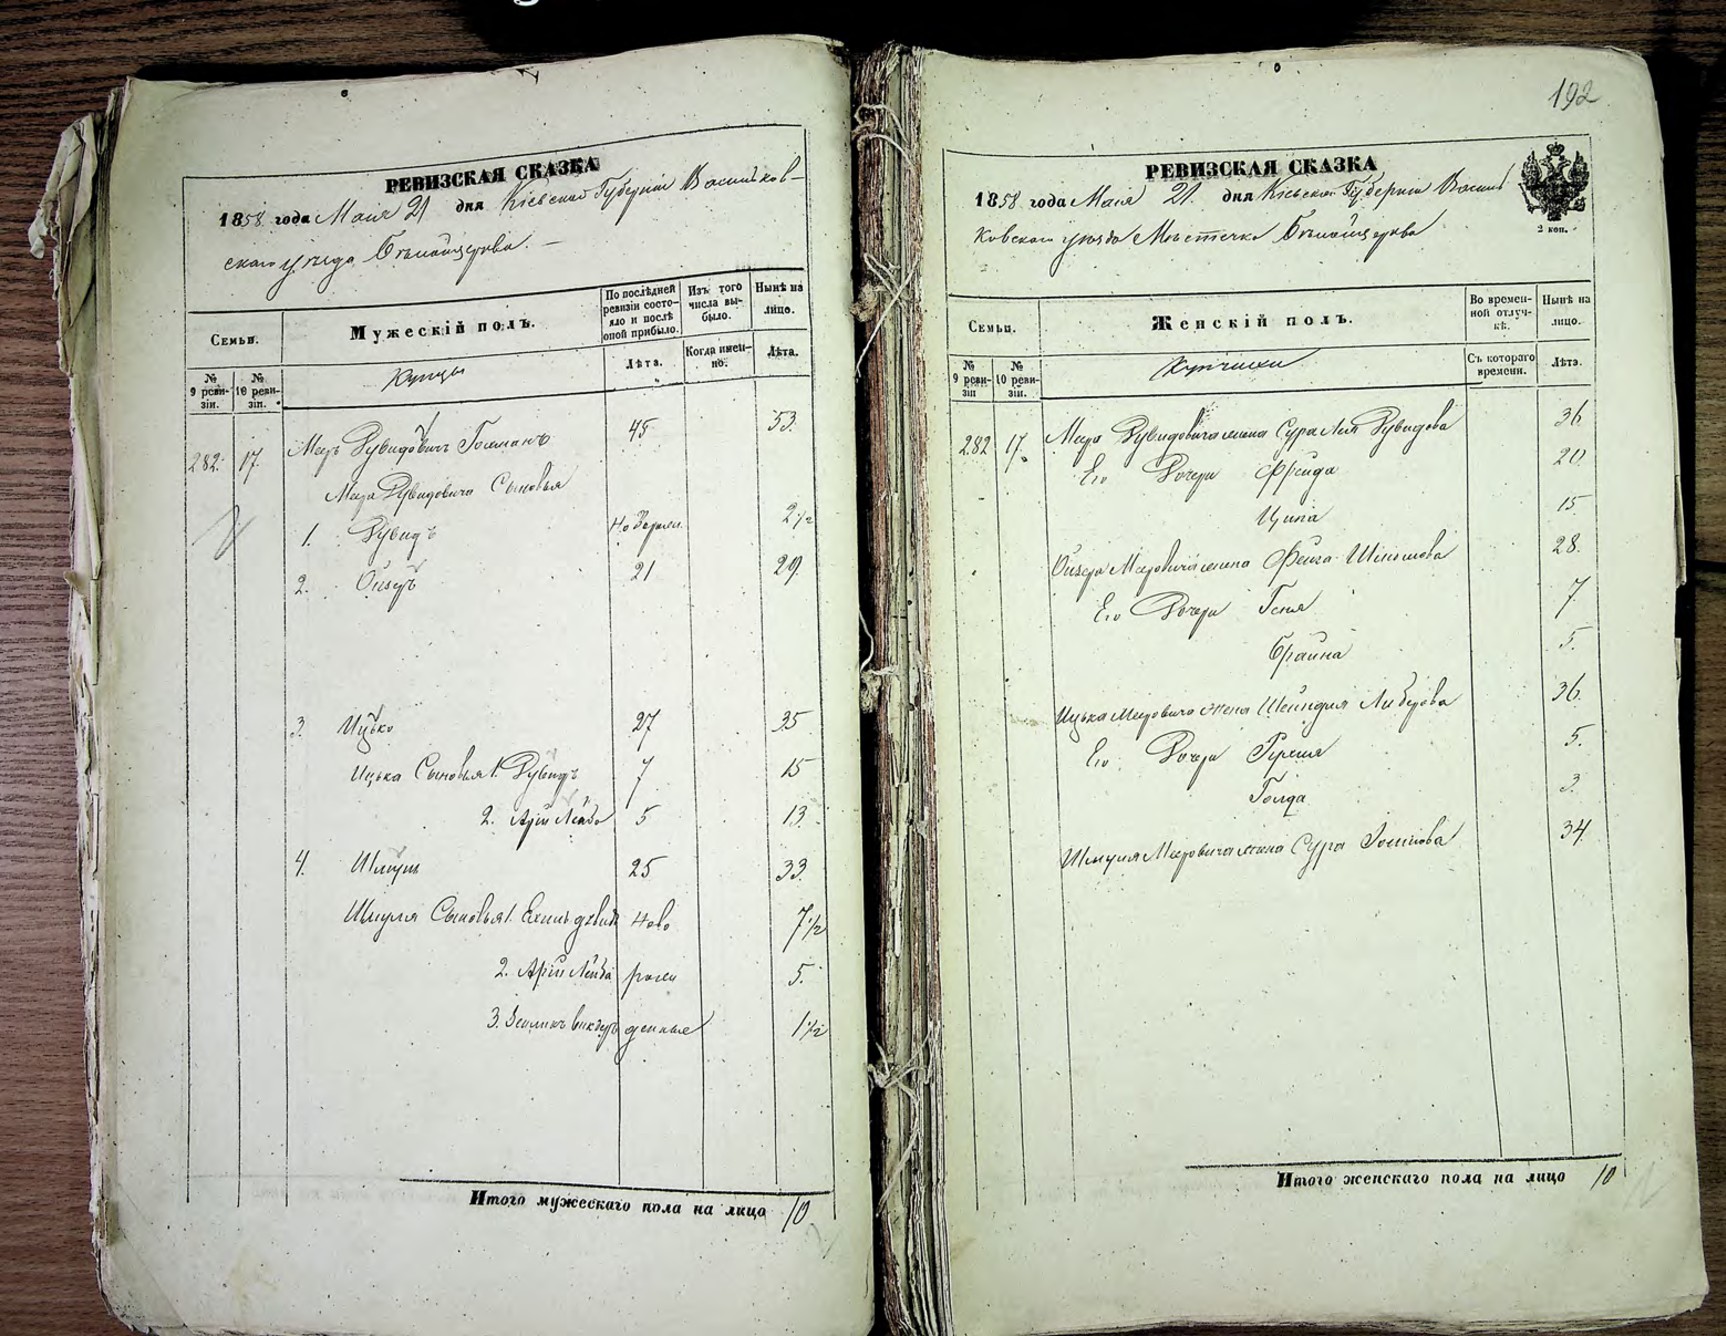 192
РЕВИЗСКАЯ СКАЗКА
1858 года Маія 21 дня Кіевской Губерніи Васильков-
скаго уѣзда
Семьи.
Мужескій полъ.
По послѣдней ревизіи состояло и послѣ оной прибыло.
Изъ того числа выбыло.
Нынѣ на лицо.
№ 9 ревизіи.
№ 10 ревизіи.
Купцы
Лѣта.
Когда именно.
Лѣта.
282. 17. Меръ Рувидовичъ 45 53.
Мера Рувидовича Сыновья
1. Рувидъ 2 1/2
2. Ойзеръ 21 29.
3. Ицько 27 35
Ицька Сыновья 1. Рувидъ 7 15
2. Арій Лейба 5 13.
4. Шмуль 25 33.
Шмуля Сыновья 1. ново 7 1/2
2. Арій Лейба рож 5.
3. денные 1 1/2
Итого мужескаго пола на лицо 10
РЕВИЗСКАЯ СКАЗКА
1858 года Маія 21. дня Кіевской Губерніи Василь
ковскаго уѣзда Мѣстечка
2 коп.
Семьи.
Женскій полъ.
Во временной отлучкѣ.
Нынѣ на лицо.
№ 9 ревизіи
№ 10 ревизіи.
Купчихи
Съ котораго времени.
Лѣта.
282 17. Мера Рувидовича жена Сура Лея Рувидова 36
Его Дочери Фрейда 20
Ципа 15
Ойзера Меровича жена Фейга 28.
Его Дочери Геня 7
Брайна 5.
Ицька Меровича жена Шейндля Либерова 36.
Его Дочери 5.
Голда 3
Шмуля Меровича жена Сура 34.
Итого женскаго пола на лицо 10